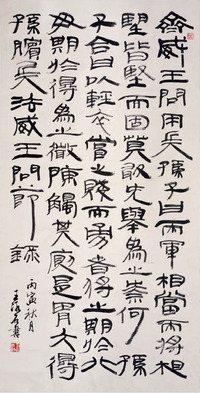 齊威王問用兵孫子曰兩軍相當兩將相
望皆堅而固莫敢先舉為之柰何孫
子合曰以輕卒嘗之賤而勇者將之期於北
毋期於得為之微陳觸其廁是胃大得
孫臏兵法威王問節錄
丙寅秋月
王遐舉書